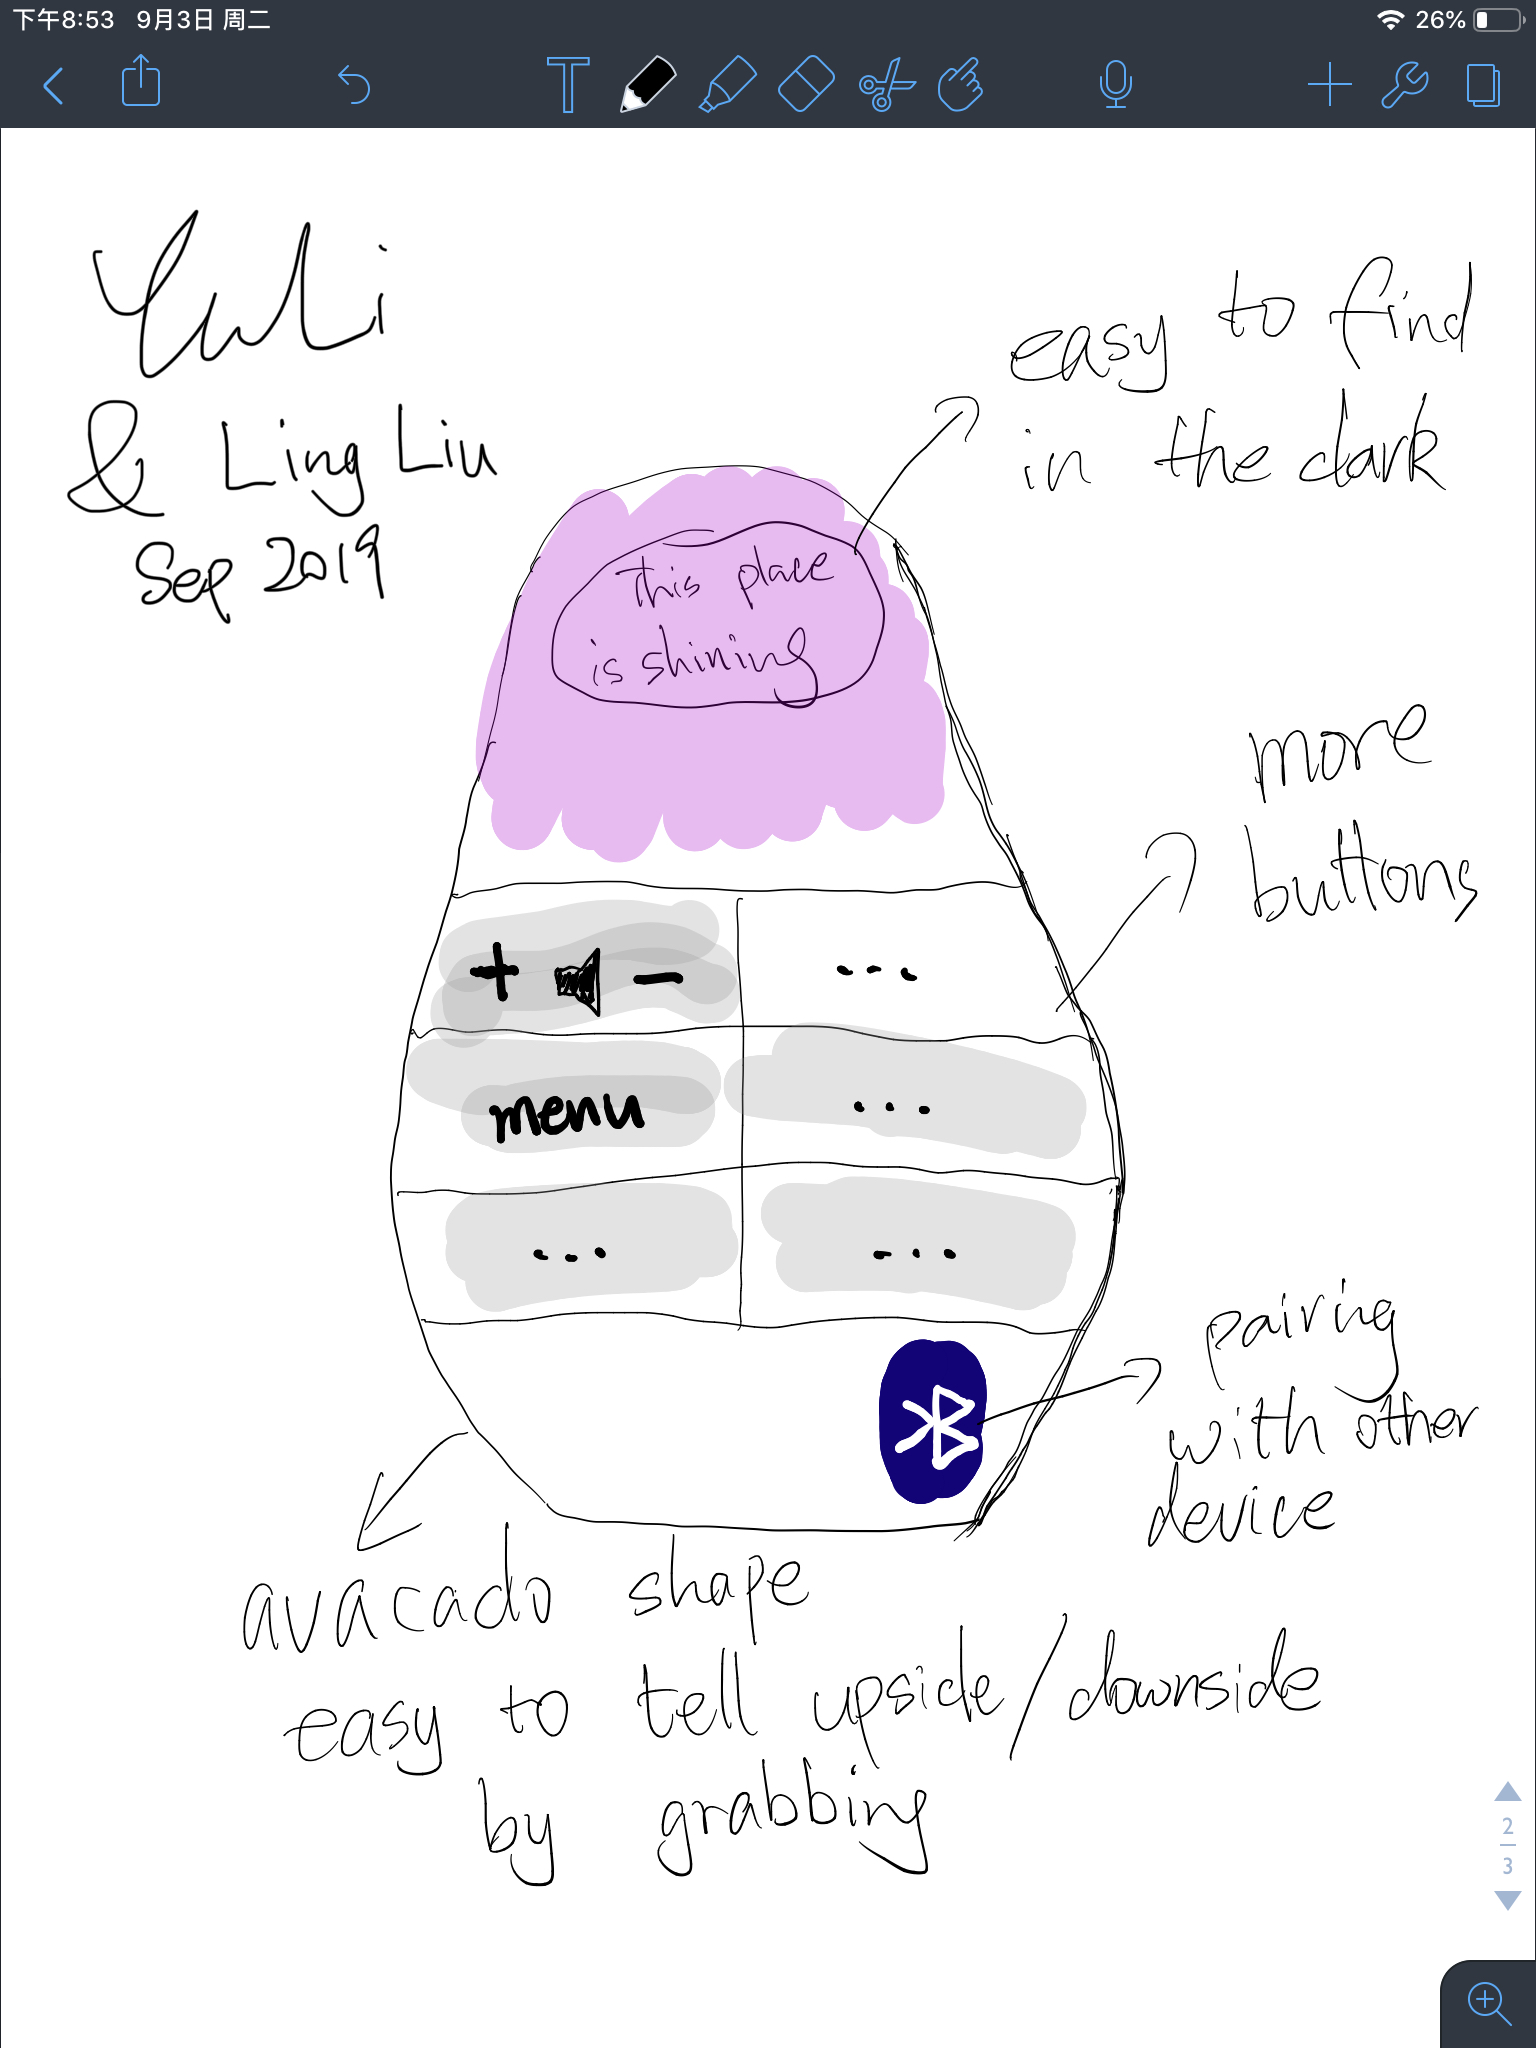 下午8:53 9月3日 周二
26%
Yu Li
& Ling Liu
Sep 2019
easy to find
in the dark
This place
is shining
more
buttons
+ -
...
menu
...
...
...
pairing
with other
device
avacado shape
easy to tell upside/downside
by grabbing
2
3